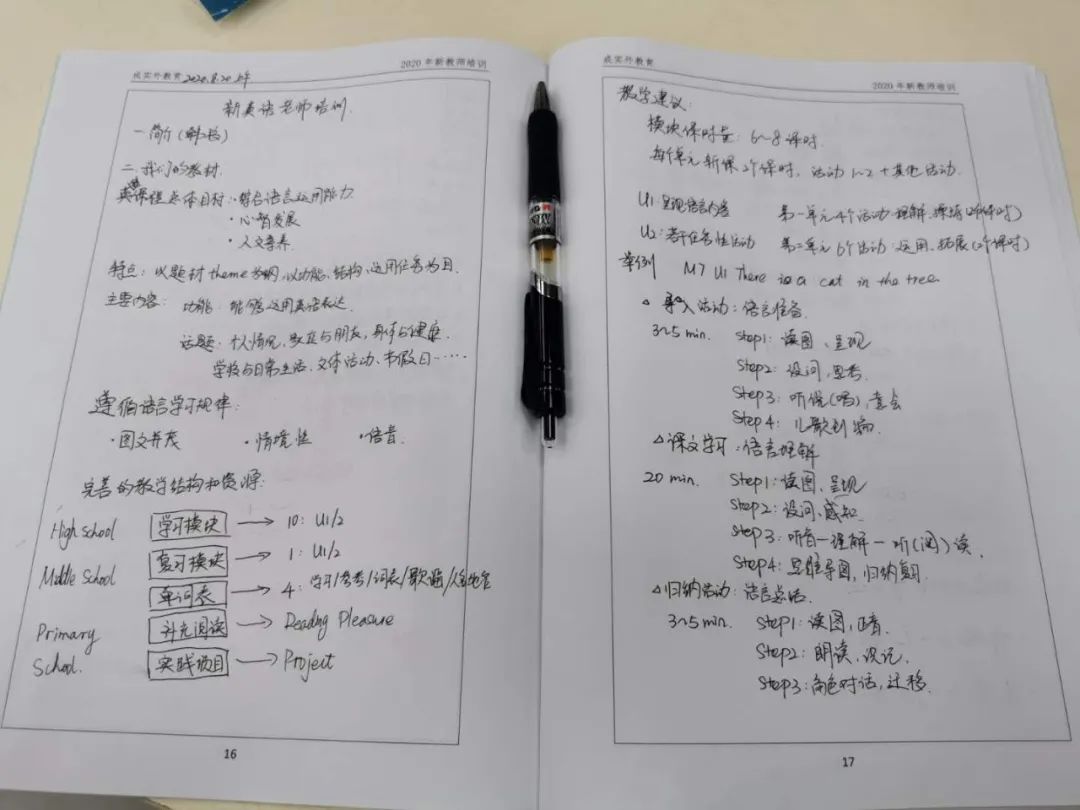 成实外教育 2020.8.20
2020年新教师培训
新英语老师培训.
一.简介
二.我们的教材.
综合语言运用能力
·心智发展
·人文素养
特点: 以题材theme为纲,以功能、结构、运用任务为目.
主要内容: 功能: 能够运用英语表达.
话题: 个人情况,家庭与朋友,身体与健康.
学校与日常生活、文体活动、节假日……
遵循语言学习规律:
·图文并茂 ·情境性 ·语音.
完善的教学结构和资源:
High school 学习模块 → 10: U1/2
复习模块 → 1: U1/2
Middle School
单词表 → 4: 学习/参考/词表/歌谣/
Primary 补充阅读 → Reading Pleasure
School. 实践项目 → Project
16
成实外教育
2020年新教师培训
教学建议:
模块课时量: 6~8课时.
每个单元新课2个课时, 活动1~2+其他活动.
U1: 呈现语言内容 第一单元4个活动:理解、操练(2个课时)
U2: 若干任务性活动 第二单元6个活动:运用、拓展(2个课时)
举例 M7 U1 There is a cat in the tree.
△导入活动: 语言准备.
3~5 min. Step1: 读图、呈现
Step2: 设问,思考.
Step3: 听说(唱),意会
Step4: 儿歌
△课文学习: 语言理解
20 min. Step1: 读图,呈现
Step2: 设问,感知
Step3: 听音-理解-听(阅)读.
Step4: 思维导图,归纳复习.
△归纳活动: 语言总结.
3~5 min. Step1: 读图,正音.
Step2: 朗读,识记.
Step3: 角色对话,迁移.
17